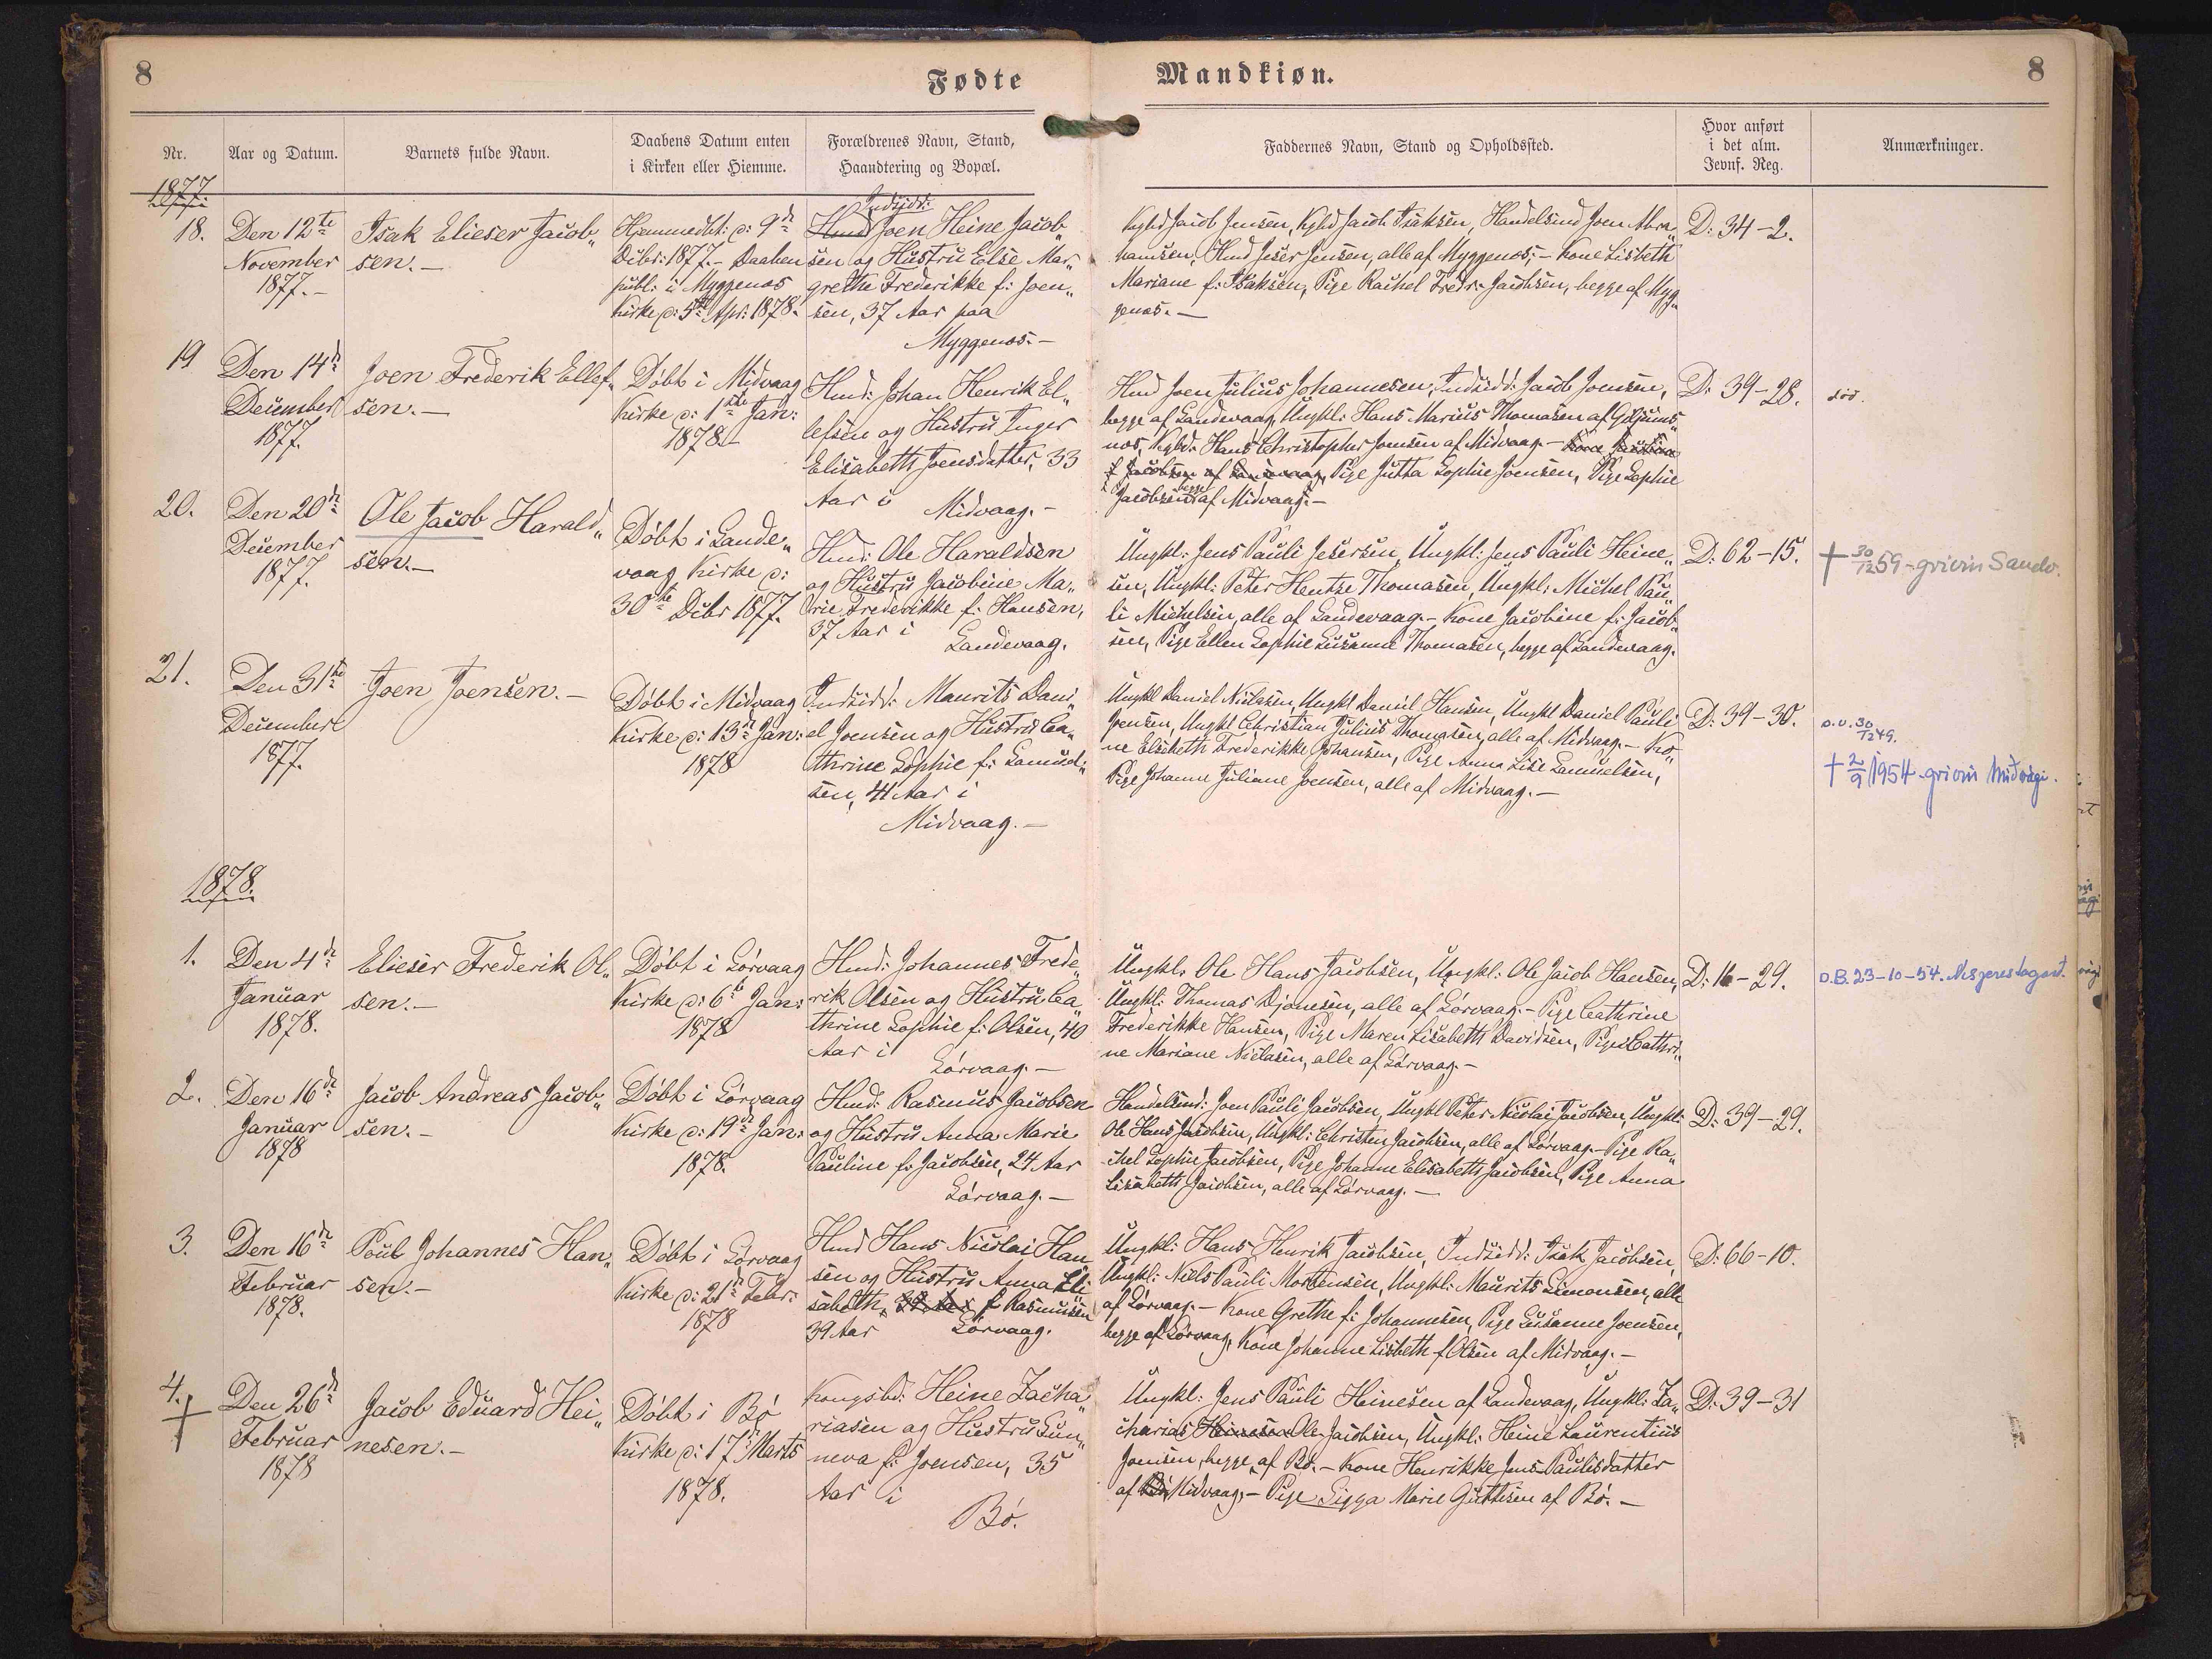 8
Fødte
Mandkiøn.
8
Nr.
Aar og Datum.
Barnets fulde Navn.
Daabens Datum enten
i Kirken eller Hiemme.
Forældrenes Navn, Stand,
Haandtering og Bopæl.
Faddernes Navn, Stand og Opholdssted.
Hvor anført
i det alm.
Jevnf. Reg.
Anmærkninger.
1877.
18.
Den 12te
November
1877.-
Isak Elieser Jacob„
sen.-
Hjemmedbt: d: 9de
Decbr: 1877.- Daaben
publ: i Myggenæs
Kirke d: 5te Apr: 1878.
Indsidd:
Hmd Joen Heine Jacob„
sen og Hustru Else Mar„
grethe Frederikke f: Joen„
sen, 37 Aar paa
Myggenæs.-
Kgbd Jacob Jensen, Kgbd Jacob Isaksen, Handelsmd Joen Abra„
hamsen, Hmd Jeser Jensen, alle af Myggenæs;- Kone Lisbeth
Mariane f: Isaksen, Pige Rachel Fredr: Jacobsen, begge af Myg„
genæs.-
D: 34-2.
19
Den 14de
December
1877.
Joen Frederik Ellef„
sen.-
Döbt i Midvaag
Kirke d: 1ste Jan:
1878.-
Hmd: Johan Henrik El„
lefsen og Hustru Inger
Elisabeth Joensdatter, 33
Aar i Midvaag.-
Hmd Joen Julius Johannesen, Indsidd: Jacob Joensen,
begge af Sandevaag, Ungkl: Hans Marius Thomasen af
næs, Kgbd: Hans Christopher Joensen af Midvaag.- Kone
f Jacobsen af Sandevaag, Pige Jutta Sophie Joensen, Pige Sophie
Jacobsen begge af Midvaag.-
D: 39-28.
död.
20.
Den 20de
December
1877.
Ole Jacob Harald„
sen.-
Döbt i Sande„
vaag Kirke d:
30te Decbr 1877.
Hmd: Ole Haraldsen
og Hustru Jacobine Ma„
rie Frederikke f: Hansen,
37 Aar i
Sandevaag.
Ungkl: Jens Pauli Jesersen, Ungkl: Jens Pauli Heine„
sen, Ungkl: Peter Hentze Thomasen, Ungkl: Michel Pau„
li Michelsen, alle af Sandevaag.- Kone Jacobine f: Jacob„
sen, Pige Ellen Sophie Susanne Thomasen, begge af Sandevaag.
D: 62-15.
† 30/12 59-grivin Sandv.
21.
Den 31te
December
1877.
Joen Joensen.-
Döbt i Midvaag
Kirke d: 13de Jan:
1878
Indsidd: Maurits Dani„
el Joensen og Hustru Ca„
thrine Sophie f: Samuel„
sen, 41 Aar i
Midvaag.-
Ungkl Daniel Nielasen, Ungkl Daniel Hansen, Ungkl Daniel Pauli
Joensen, Ungkl Christian Julius Thomasen, alle af Midvaag.- Ko„
ne Elsebeth Frederikke Johansen, Pige Anna Lise Samuelsen,
Pige Johanne Juliane Joensen, alle af Midvaag.-
D: 39-30.
o.v. 30/12 49.
† 2/9 1954-grivin Miðvági.
1878.
1.
Den 4de
Januar
1878.
Elieser Frederik Ol„
sen.-
Döbt i Sörvaag
Kirke d: 6te Jan:
1878
Hmd: Johannes Frede„
rik Olsen og Hustru Ca„
thrine Sophie f: Olsen, 40
Aar i
Sörvaag.-
Ungkl. Ole Hans Jacobsen, Ungkl: Ole Jacob Hansen,
Ungkl: Thomas Djonesen, alle af Sörvaag.- Pige Cathrine
Frederikke Hansen, Pige Maren Lisabeth Davidsen, Pige Cathri„
ne Mariane Nielasen, alle af Sörvaag.-
D: 16-29.
D.B. 23-10-54.
2.
Den 16de
Januar
1878
Jacob Andreas Jacob„
sen.-
Döbt i Sörvaag
Kirke d: 19de Jan:
1878.
Hmd: Rasmus Jacobsen
og Hustru Anna Marie
Pauline f: Jacobsen, 24 Aar
Sörvaag.-
Handelsmd: Joen Pauli Jacobsen, Ungkl Peter Nicolai Jacobsen, Ungkl:
Ole Hans Jacobsen, Ungkl: Christen Jacobsen, alle af Sörvaag.- Pige Ra„
chel Sophie Jacobsen, Pige Johanne Elisabeth Jacobsen, Pige Anna
Lisabeth Jacobsen, alle af Sörvaag.-
D: 39-29.
3.
Den 16de
Februar
1878.
Poul Johannes Han„
sen.-
Döbt i Sörvaag
Kirke d: 21de Febr:
1878
Hmd Hans Nicolai Han
sen og Hustru Anna Eli„
sabeth, 39 Aar f Rasmussen
39 Aar Sörvaag.
Ungkl: Hans Henrik Jacobsen, Indsidd: Isak Jacobsen,
Ungkl: Niels Pauli Mortensen, Ungkl: Maurits Simonsen, alle
af Sörvaag.- Kone Grethe f: Johannesen, Pige Susanne Joensen,
begge af Sörvaag, Kone Johanne Lisbeth f Olsen af Midvaag.-
D: 66-10.
4.
†
Den 26de
Februar
1878
Jacob Eduard Hei„
nesen.-
Döbt i Bö
Kirke d: 17de Marts
1878.
Kongsbd: Heine Zacha„
riasen og Hustru Sun„
neva f: Joensen, 35
Aar i
Bö.
Ungkl: Jens Pauli Heinesen af Sandevaag, Ungkl: Za„
charias Heinesen Ole Jacobsen, Ungkl: Heine Laurentius
Joensen, begge af Bö.- Kone Henrikke Jens Paulisdatter
af Bö Midvaag,- Pige Sigga Marie Guttesen af Bö.-
D: 39-31